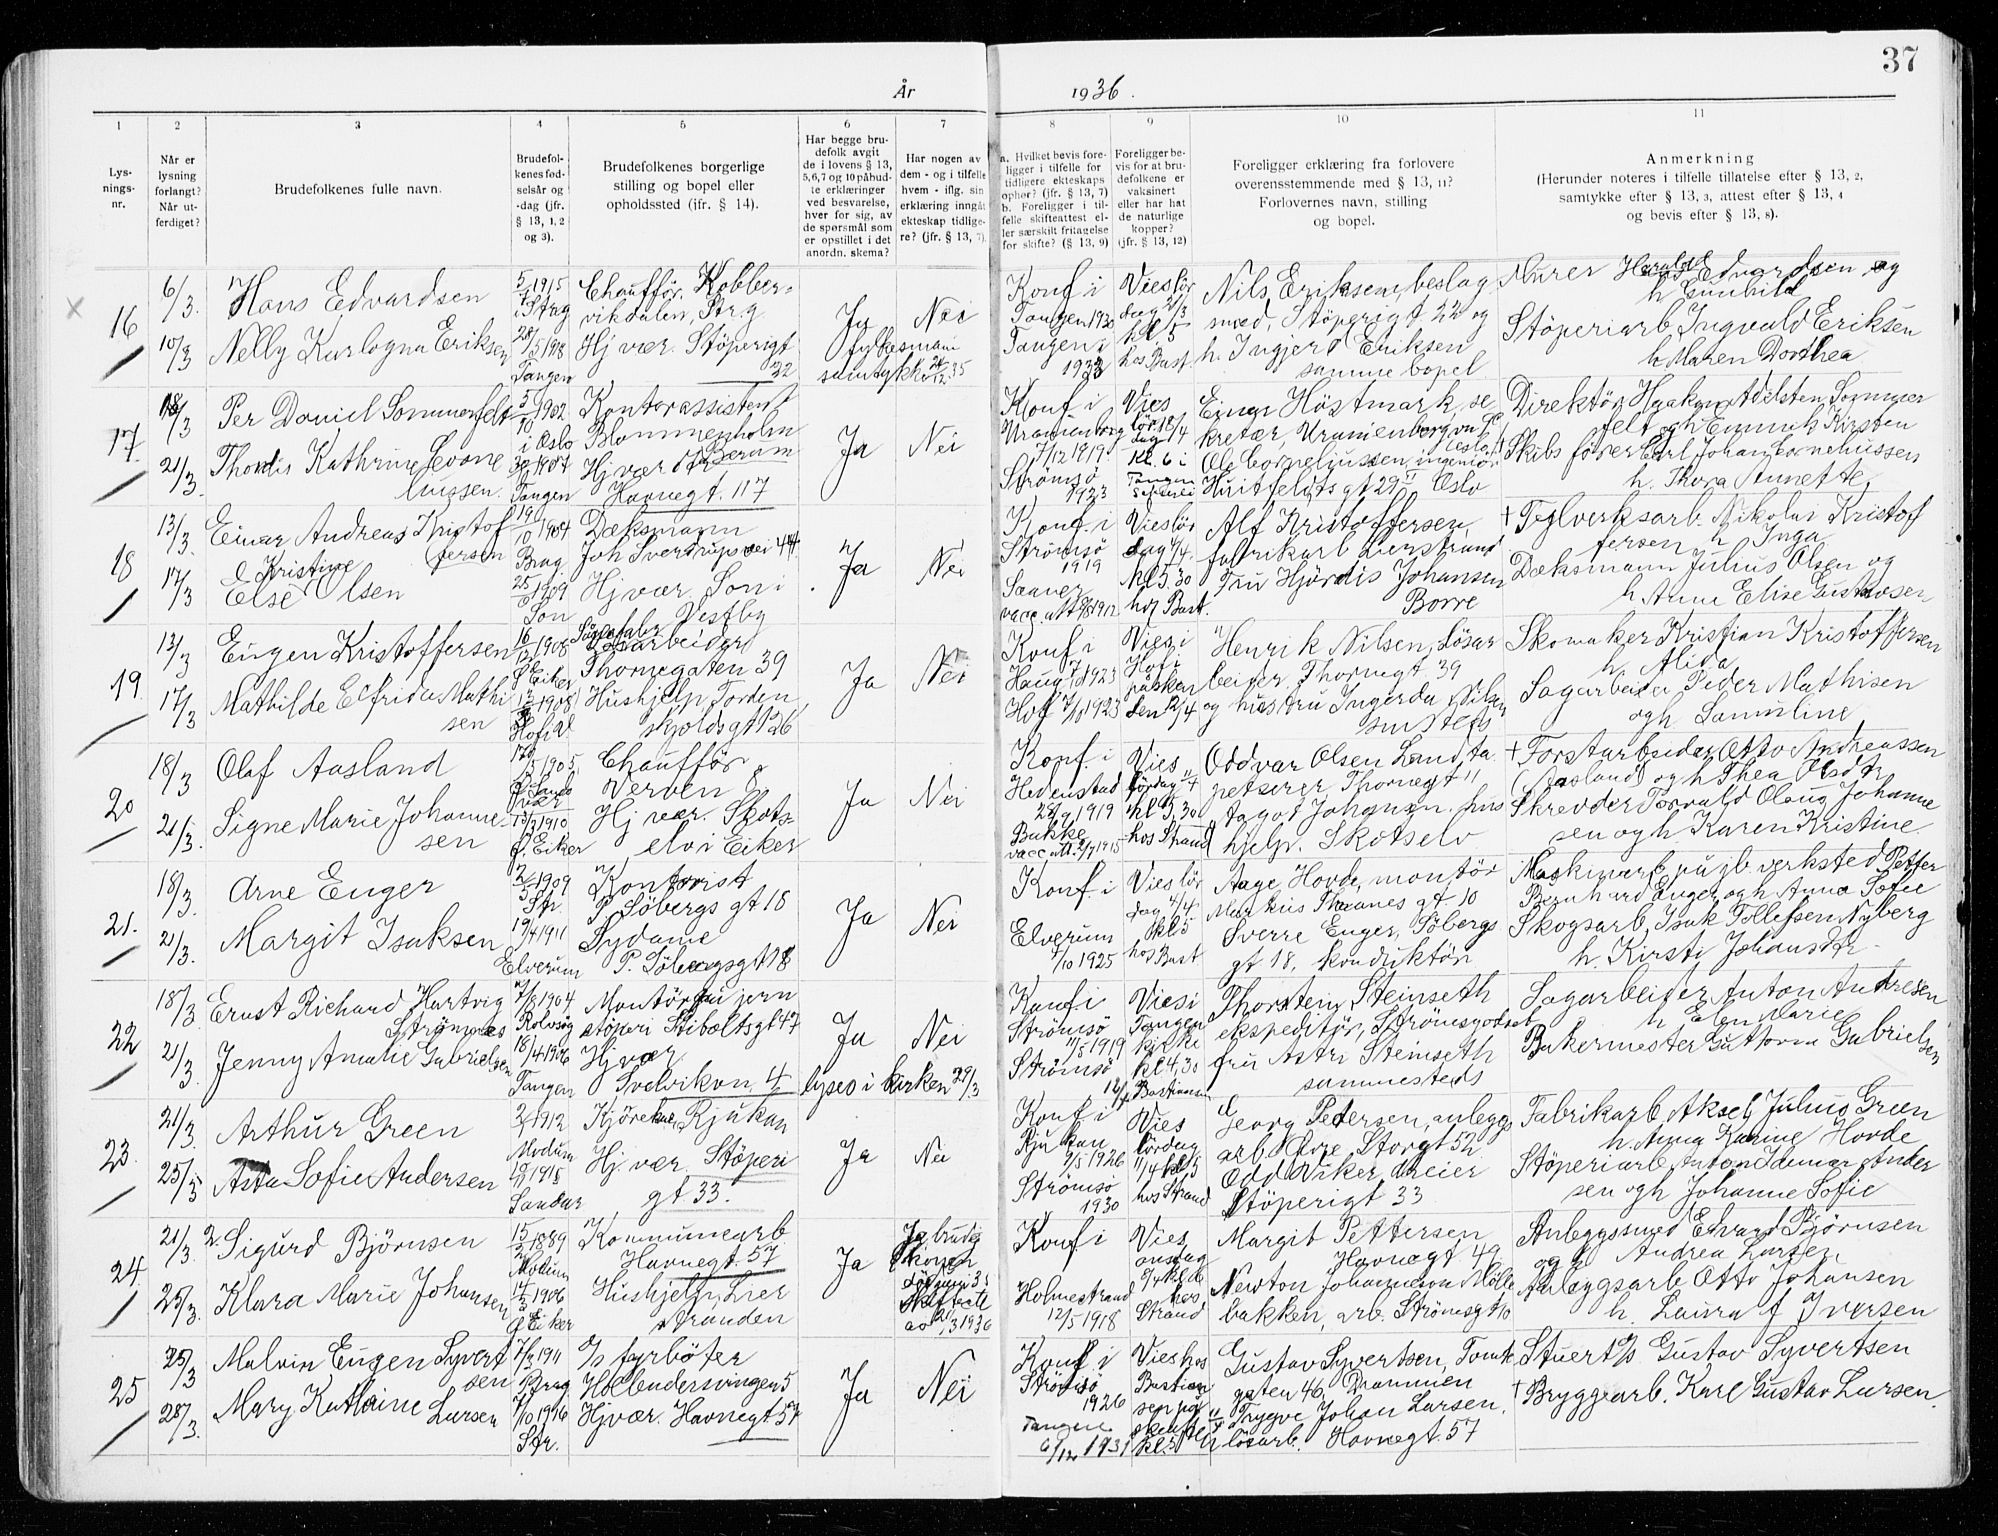 37
År
1936.
1
2
3
4
5
6
7
8
9
10
11
Lys-
nings-
nr.
Når er
lysning
forlangt?
Når ut-
ferdiget?
Brudefolkenes fulle navn.
Brudefol-
kenes fød-
selsår og
-dag (jfr.
§ 13, 1, 2
og 3).
Brudefolkenes borgerlige
stilling og bopel eller
opholdssted (ifr. § 14).
Har begge bru-
defolk avgit
de i lovens § 13,
5, 6, 7 og 10 påbud-
te erklæringer
ved besvarelse,
hver for sig, av
de spørsmål som
er opstillet i det
anordn. skema?
Har nogen av
dem - og i tilfelle
hvem - iflg. sin
erklæring inngåt
ekteskap tidlige-
re? (jfr. § 13, 7)
a. Hvilket bevis fore-
ligger i tilfelle for
tidligere ekteskaps
ophør? (jfr. § 13, 7)
b. Foreligger i til-
felle skifteattest el-
ler særskilt fritagelse
for skifte? (§ 13, 9)
Foreligger be-
vis for at bru-
defolkene er
vaksinert
eller har hat
de naturlige
kopper?
(jfr. § 13, 12)
Foreligger erklæring fra forlovere
overensstemmende med § 13, 11?
Forlovernes navn, stilling
og bopel.
Anmerkning
(Herunder noteres i tilfelle tillatelse efter § 13, 2,
samtykke efter § 13, 3, attest efter § 13, 4
og bevis efter § 13, 8).
16
6/3.
10/3
Hans Edvardsen
Nelly Karlogna Eriksen
5/7 1915
i Strg
28/5 1918
Tangen
Chauffør. Kobber-
vikdalen, Strg
Hj. vær. Støperigt
22
Ja
Nei
fylkesmann
samtykke
Konf i
Tangen 1930
Tangen i
1933
Vies lør
dag 21/3
kl. 5
hos Bast.
Nils Eriksen, beslag
smed, Støperigt 22 og
h. Ingjerd Eriksen
samme bopel
Murer Harald Edvardsen og
h Gunhild
Støperiarb, Ingvald Eriksen
h Maren Dorthea
17
18/3
21/3.
Per Daniel Sommerfelt
Thordis Kathrine Corne
liussen.
1902
i Oslo
1907
Tangen
Kontorassistent
Blommenholm
Bærum
Hj vær
Havnegt. 117
Ja
Nei
Konf. i
Uranienborg
7/12 1919
Strømsø
1923
Vies
lør 18/4
dag
Kl. 6 i
Tangen
Einar Høstmark, se-
kretær, Uranienborg
Oslo
Ole Corneliussen, ingeniør
Huitfeldts gt 29 Oslo
Direktør Haakon Adelsten Sommer
felt og h Emmik Kirsten
Skibsfører Carl Johan Corneliussen
h. Thora Annette
18
13/3.
17/3
Einar Andreas Kristof
fersen
Kristine
Else Olsen
19/10 1904
Brag.
25/6 1909
Son
Dæksmann
Joh Sverdrups vei 44
Hj vær. Son i
Vestby
Ja
Nei
Konf. i
Strømsø
1919
Saaner
Vies lør
dag 4/4.
kl 5.30
hos Bast.
Alf Kristoffersen,
fabrikarb Lierstrand
Fru Hjørdis Johansen
Borre
+ Teglverksarb. Nikolai Kristof
fersen h Inga
Dæksmann Julius Olsen og
h. Anne Elise Gustavsen
19.
13/3
17/3
Eugen Kristoffersen
Mathilde Elfrida Mathi
sen
16/12 1908
Ø Eiker
13/3 1908
Hof i V
Løsarbeider
Thornegaten 39
Hushjelp Torden
skjoldsgt 126
Ja
Nei
Konf i
Haug 7/8 1923
Hof 7/10 1923
Vies i
Hof i
påsken
den 12/4
Henrik Nilsen, Løsar
beider. Thornegt 39
og hustru Ingerda Nilsen
sammesteds
Skomaker Kristian Kristoffersen
h. Alida
Sagarbeider Peder Mathisen
og h Samuline
20
18/3
21/3.
Olaf Aasland
Signe Marie Johanne-
sen
1905,
13/3 1910
Ø. Eiker
Chauffør
Verven 8
Hj vær. Skots-
elv i Eiker
Ja
Nei
Konf. i
Hedenstad
28/9 1919
Bakke
Vies
lørdag 11/4
kl 5,30
hos Strand
Oddvar Olsen Landta
petserer Thornegt 11
Aagot Johansen. hus
hjelp. Skotselv
+ Forstarbeider Otto Andreassen
(Aasland) og h Thea Olsdtr
Skredder Torvald Olaug Johanne
sen og h. Karen Kristine.
21.
18/3.
21/3.
Arne Enger
Margit Isaksen
2/5 1909
Str.
19/4 1911
Elverum
Kontorist
P. Søbergs gt 18
Sydame
P. Søbergsgt 18
Ja
Nei
Konf. i
Elverum
4/10 1925
Vies lør
dag 4/4
kl 5
hos Bast
Aage Hovde, montør
Markus Thranes gt 10
Sverre Enger, Søbergs
gt 18, konduktør
Maskinarb. på jb. verksted Petter
Bernhard Enger, og h Anna Sofie
Skogsarb, Isak Tollefsen Nyberg
h. Kirsti Johansdtr
22
18/3.
21/3.
Ernst Richard Hartvig
Strømnes
Jenny Amalie Gabrielsen
7/8 1904
Rolvsøy
18/4 1906
Tangen
Montør på jern
støperi Stiboltsgt 42
Hj vær.
Svelvikvn. 4/
Ja
Nei
lyses i kirken 29/3
Konf i
Strømsø
11/5 1919
Strømsø
Vies i
Tangen
kirke
kl 4,30
Bastiansen
Thorstein Steinseth
ekspeditør, Strømsgodset
fru Astri Steinseth
sammesteds
Sagarbeider Anton Andresen
h Elen Marie
Bakermester Guttorm Gabrielsen
23.
21/3.
25/3
Arthur Green
Asta Sofie Andersen
1912
Modum
1915
Sandar
Kjørekar, Rjukan
Hj. vær. Støperi
gt 33.
Ja
Nei
Konf i
Rjukan
9/5 1926
Strømsø
1930
Vies
lørdag
11/4 kl 5
hos Strand
Georg Petersen, anleggs
arb. Øvre Storgt 52.
Odd Viker, dreier
Støperigt 33
Fabrikarb. Aksel Julius Green
h. Anna Karine Hovde
Støperiarb. Anton Idemar Ander
sen og h Johanne Sofie
24.
21/3.
25/3.
Sigurd Bjørnsen
Klara Marie Johansen
15/3 1889
Modum
14/3 1906
Ø Eiker
Kommunearb
Havnegt. 57
Hushjelp, Lier
stranden
Ja
Konf i
Holmestrand
12/5 1918
Vies
onsdag
kl 6
hos
Strand
Margit Pettersen
Havnegt 49
Newton Johannson Mølle
bakken, arb. Strømsgt 10
Anleggssmed Edvard Bjørnsen
og h Andrea Larsen
Anleggsarb Otto Johansen
h. Laura f Iversen
25
25/3
28/3.
Malvin Eugen Syvert
sen
Mary Kathrine Larsen
7/3 1911
Brag
7/10 1916
Str.
D/s fyrbøter
Hollendersvingen 5
Hj vær. Havnegt 57
Ja
Nei
Konf. i
Strømsø
1926
Tangen
6/12 1931
Vies hos
Bastian
sen på
kl. 5
Gustav Syvertsen, Tomte
gaten 46, Drammen
Trygve Johan Larsen,
løsarb. Havnegt. 57
Stuert D/s Gustav Syvertsen
+ Bryggearb. Karl Gustav Larsen.